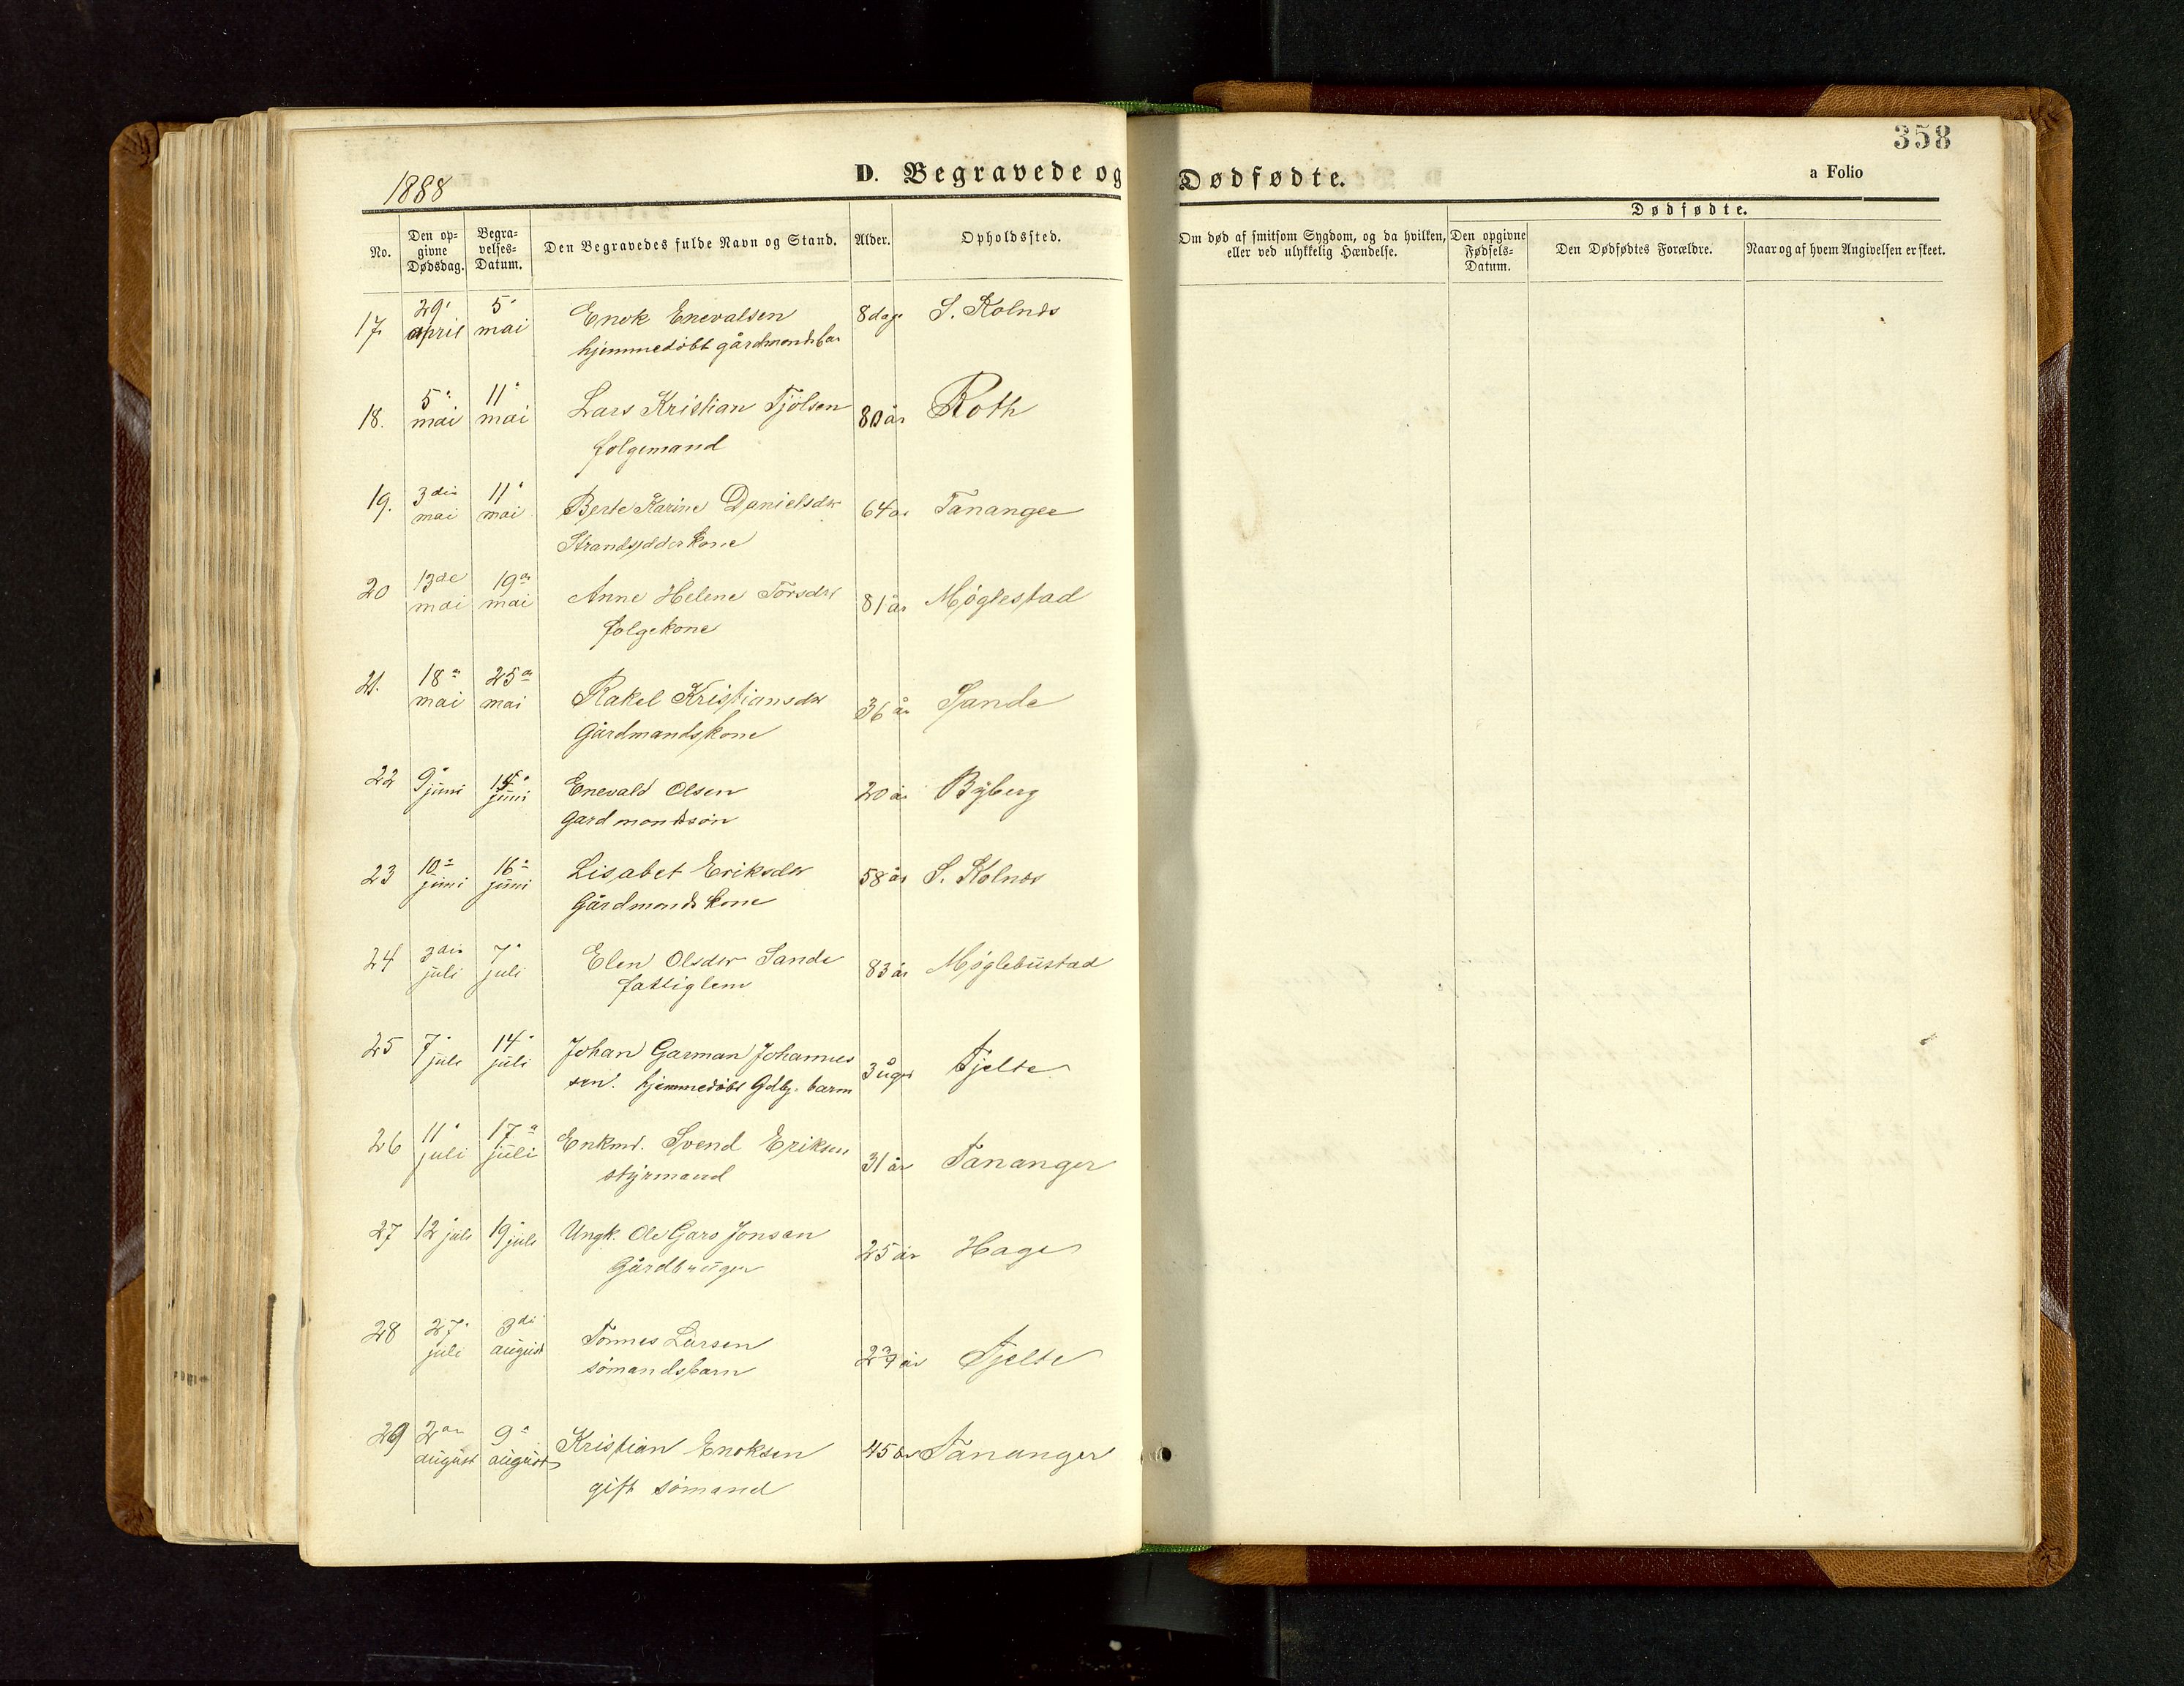 358
1888
D. Begravede og Dødfødte.
a Folio
Dødfødte.
No.
Den op=
givne
Dødsdag.
Begra=
velses=
Datum.
Den Begravedes fulde Navn og Stand.
Alder.
Opholdssted.
Om død af smitsom Sygdom, og da hvilken,
eller ved ulykkelig Hændelse.
Den opgivne
Fødsels=
Datum.
Den Dødfødtes Forældre.
Naar og af hvem Angivelsen er skeet.
17. 29. april 5. mai Enok Enevalsen 8 dage S. Kolnes
hjemmedöbt gårdmandsbar
18. 5. mai 11. mai Lars Kristian Tjölsen 80 år Roth
folgemand
19. 3die mai 11. mai Berte Karine Danielsdr 64 år Tananger
Strandsidderkone
20 13de mai 19de mai Anne Helene Torsdr 81 år Møglestad
folgekone
21. 18de mai 25de mai Rakel Kristiansdr 36 år Sande
Gårdmandskone
22 9. juni 14. juni Enevald Olsen 20 år Byberg
Gardmandssön
23 10. juni 16. juni Lisabet Eriksdr 58 år S. Kolnes
Gårdmandskone
24 3die juli 7. juli Elen Olsdr Sande 83 år Møglebustad
fattiglem
25 7. juli 14. juli Johan Garman Johannes 3 uger Tjelte
sen. hjemmedöbt Gdbr. barn
26 11. juli 17. juli Enkmd. Svend Eriksen 31 år Tananger
styrmand
27 12 juli 19 juli Ungk. Ole Gars Jonsan 25 år Haga
Gårdbruger
28 27. juli 3die august Tönnes Larsen år Tjelte
sömandsbarn
29 2den august 9. august Kristian Enoksen 45 år Tananger
gift sömand